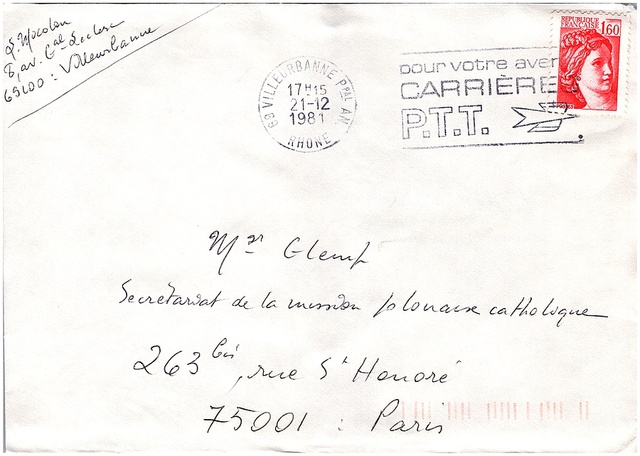 S. Mocolon
8, av. Gal Leclerc
69100 : Villeurbanne
69 VILLEURBANNE PPAL ANX
17H15
21-12
1981
RHONE
pour votre avenir
CARRIÈRES
P.T.T.
REPUBLIQUE
FRANÇAISE 1,60
Mgr Glemp
Secretariat de la mission plonaise catholique
263 bis, rue St Honoré
75001 : Paris